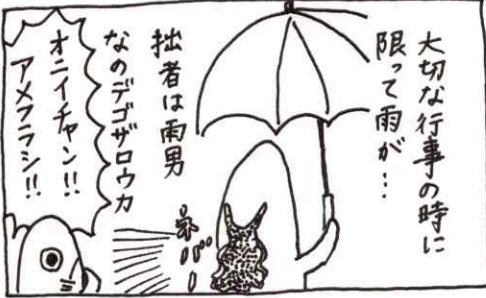 大切な行事の時に
限って雨が…
拙者は雨男
なのデゴザロウカ
ネバー
オニイチャン!!
アメフラシ!!